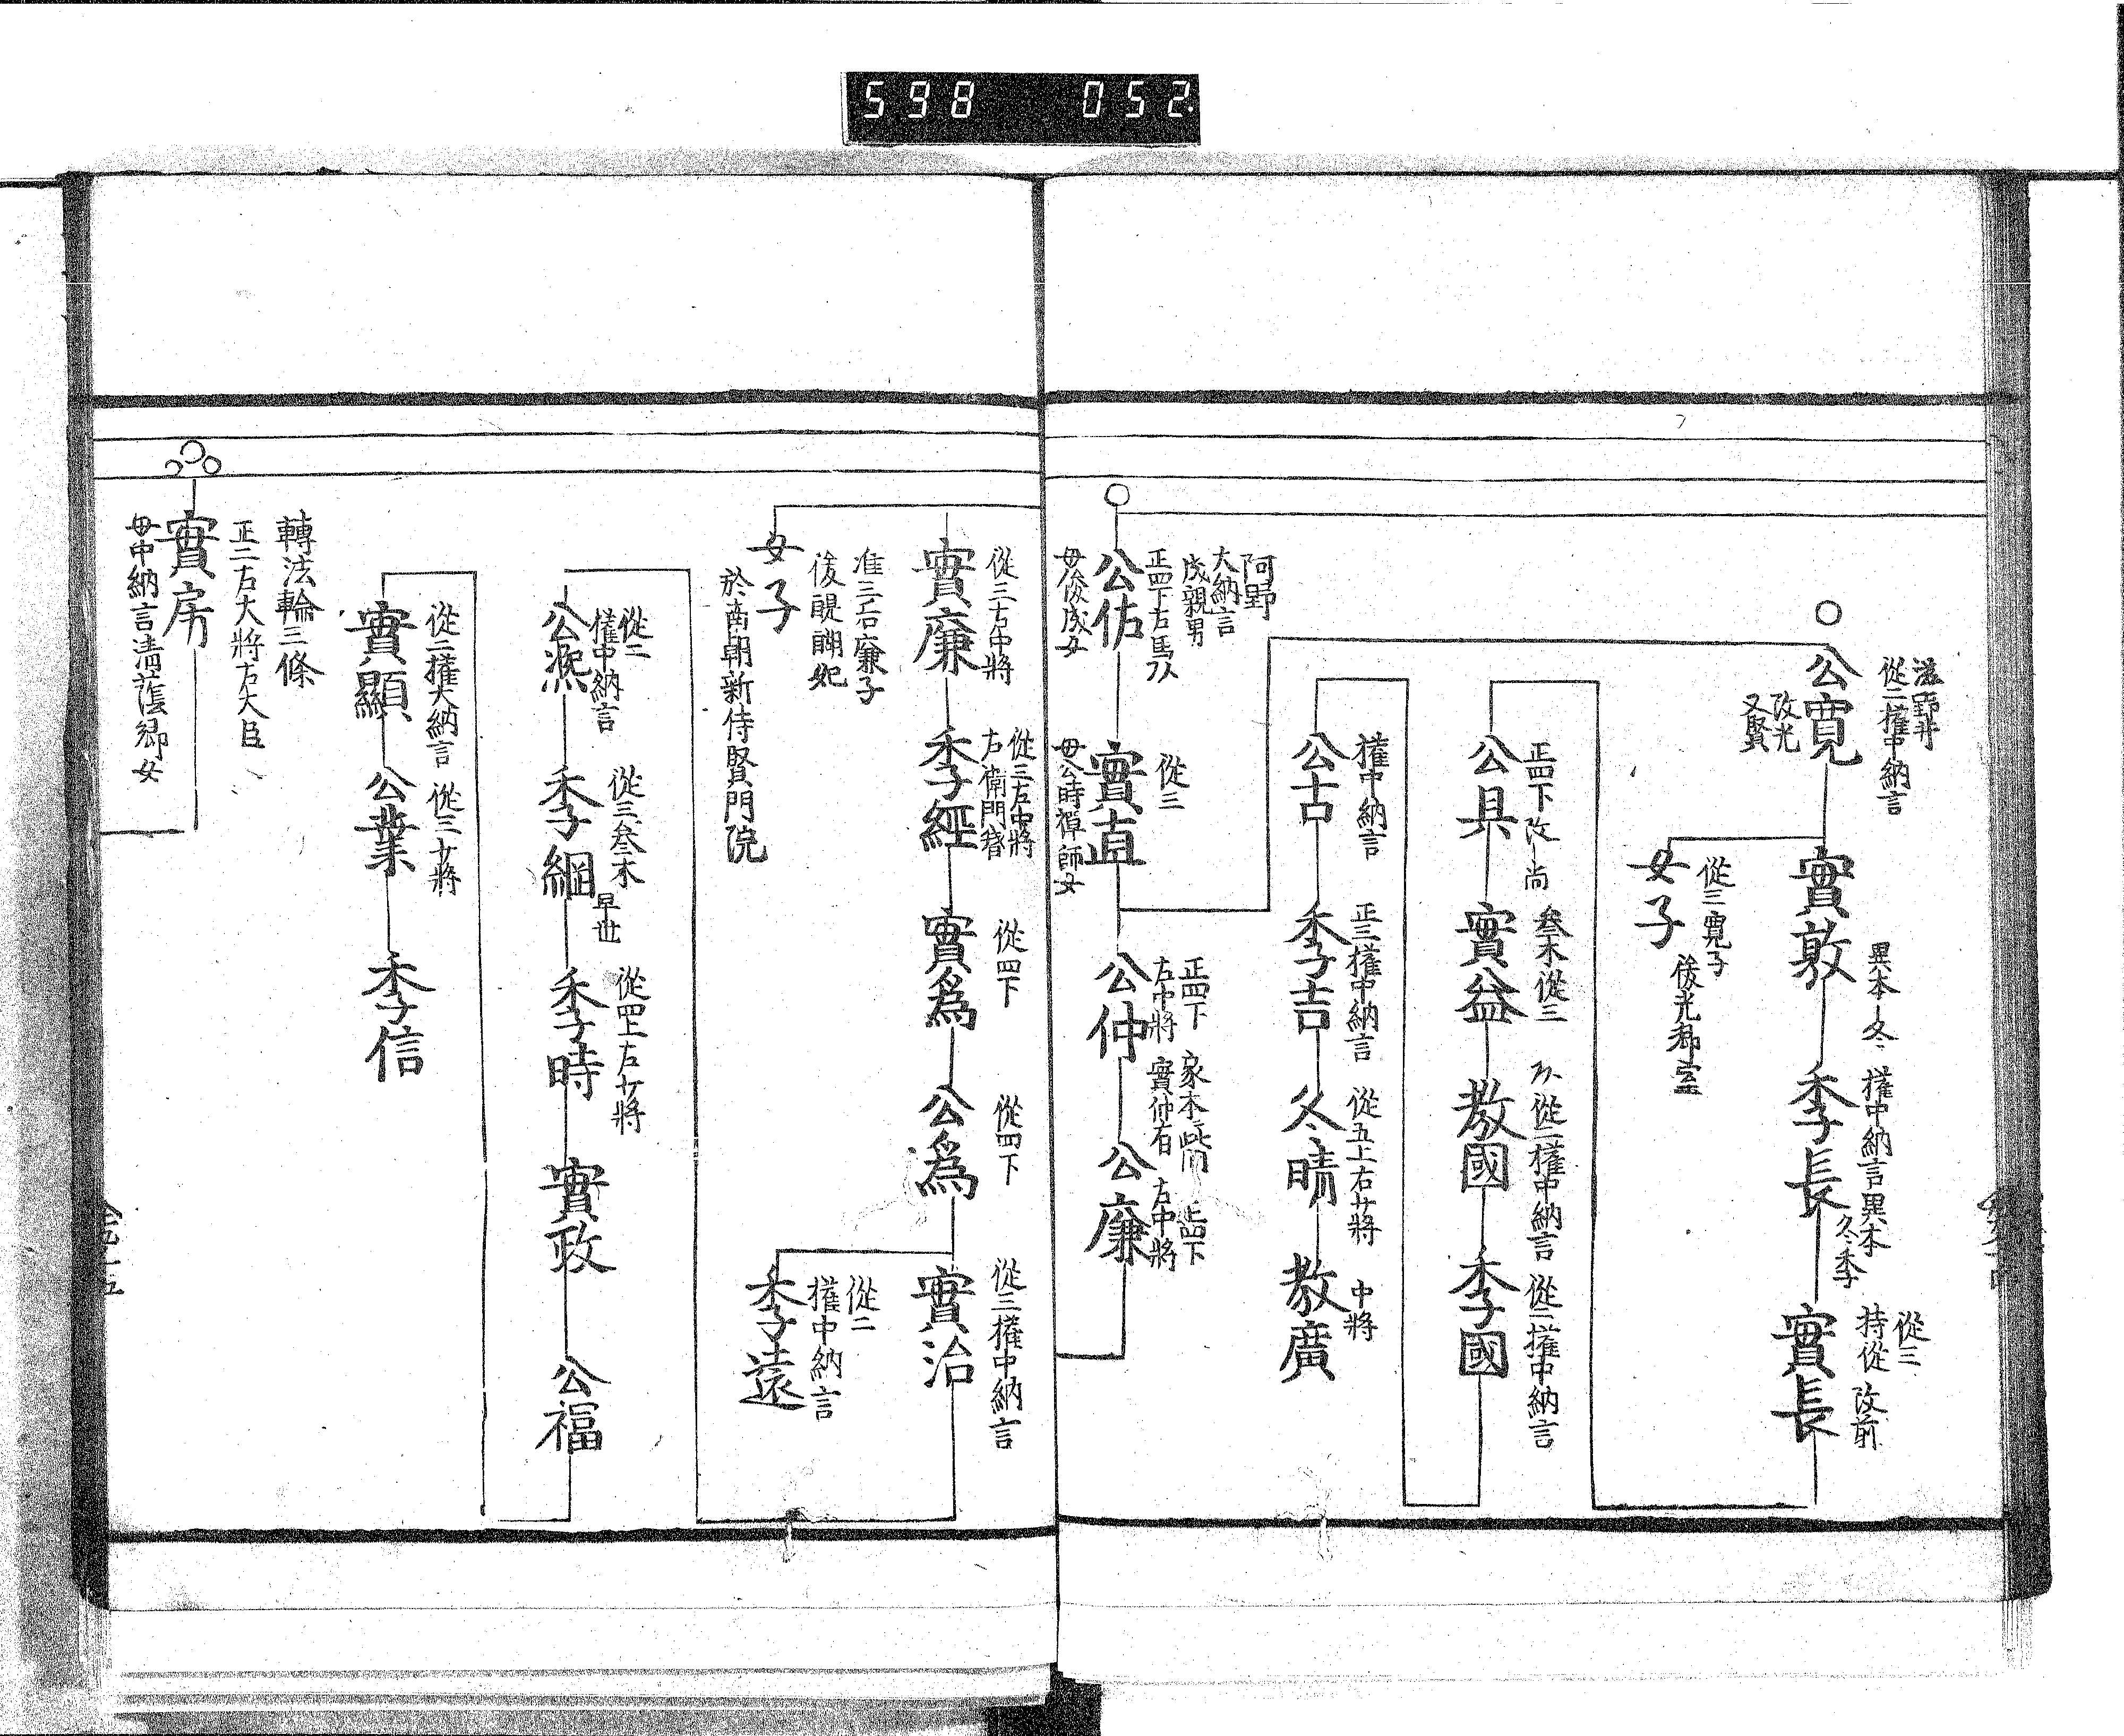 598 052
滋野井
從二權中納言
公寛
改光
又賢
實敦
異本冬
從三寛子
女子
後光君室
權中納言異本
冬季
季長
從三
持從 改前
實長
正四下改尚
公具
叅木從三
實益
從二權中納言
教國
從二權中納言
季國
權中納言
公古
正三權中納言
季吉
從五上右少將
冬晴
中將
教廣
阿野
大納言
成親男
正四下左馬
公佐
母俊成女
從三
實直
母公時禪師女
正四下
左中將
公仲
家本此間
實仲有
正四下
左中將
公廉
從三右中將
實廉
從三左中將
右衛門督
季經
從四下
實爲
從四下
公爲
從三權中納言
實治
准三后廉子
後醍醐妃
女子
於南朝新侍賢門院
從二
權中納言
季遠
從二
權中納言
公凞
從三叅木
早世
季綱
從四上左少將
季時
實政
公福
從二權大納言
實顯
從三少將
公業
季信
轉法輪三條
正二右大將右大臣
實房
母中納言清蔭卿女